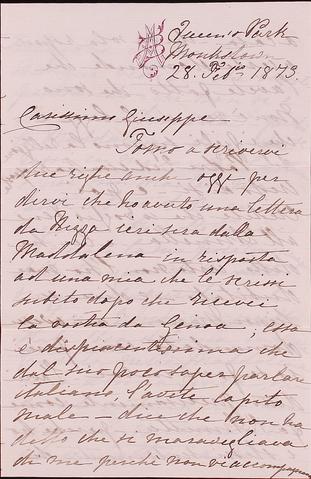 Queen's Park
Monkstown
28. Feb. 1873.
Carissimo Giuseppe
Torno a scrivervi
due righe anch' oggi per
dirvi che ho avuto una lettera
da Nizza ieri sera dalla
Maddalena in risposta
ad una mia che le scrissi
subito dopo che ricevei
la vostra da Genoa, essa
è dispiacentissima che
dal suo poco saper parlare
italiano, l'avete capito
male – dice che non ha
detto che si maravigliava
di me perchè non vi accompagnai